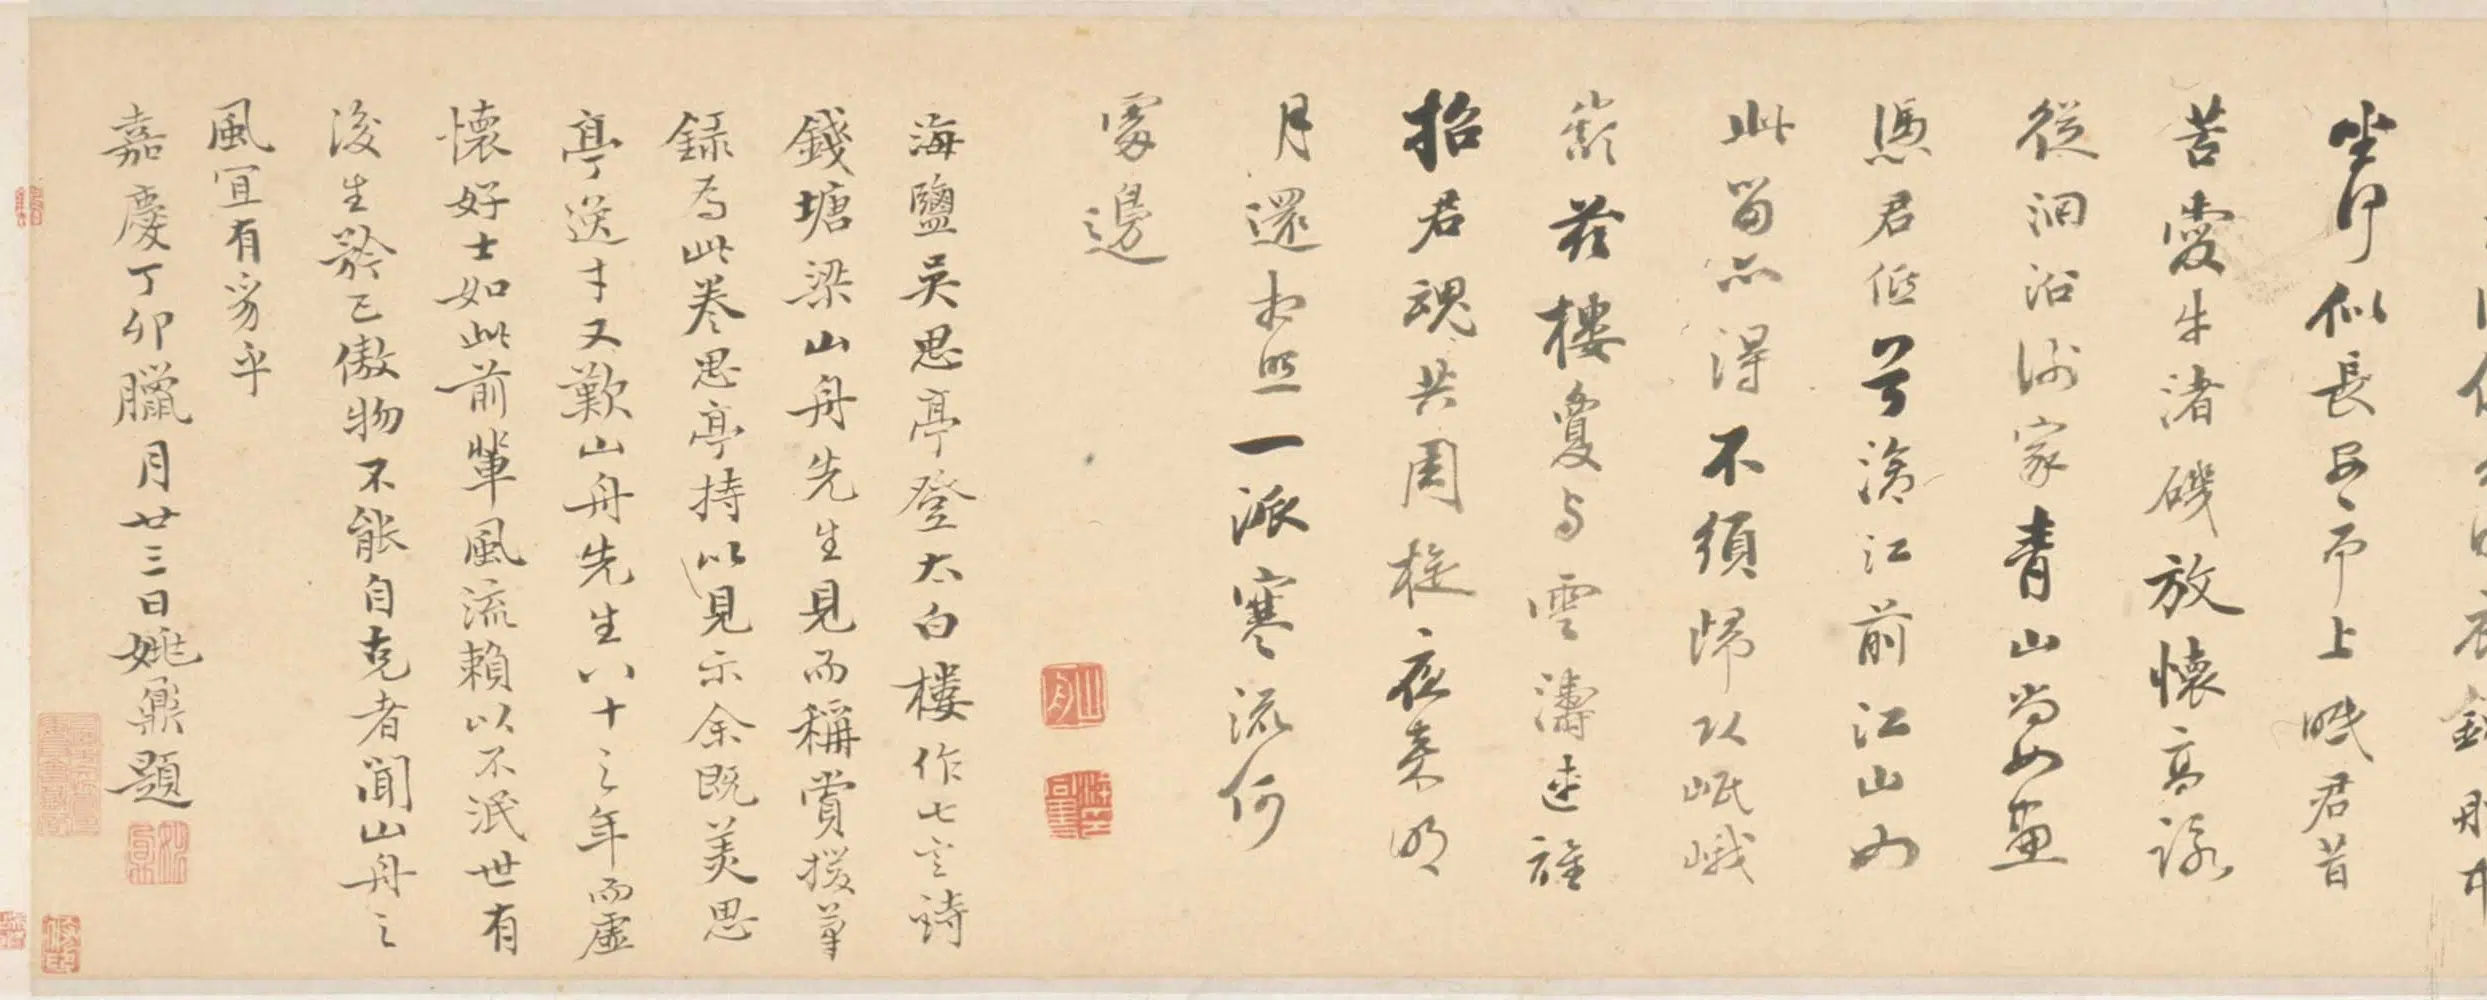 坐卧似長安市上眠君昔
苦愛牛渚磯放懷高詠
從洄沿謝家青山尚如畫
憑君低首滄江前江山如
此留亦得不須歸臥岷峨
巔茲樓夐与雲濤連誰
招君魂共周旋夜來明
月還相照一派寒流何
處邊
海鹽吳思亭登太白樓作七言詩
錢塘梁山舟先生見而稱賞援筆
錄為此卷思亭持以見示余既美思
亭逸才又歎山舟先生八十之年而虛
懷好士如此前輩風流賴以不泯世有
後生矜己傲物不能自克者聞山舟之
風宜有豸乎
嘉慶丁卯臘月廿三日姚鼐題